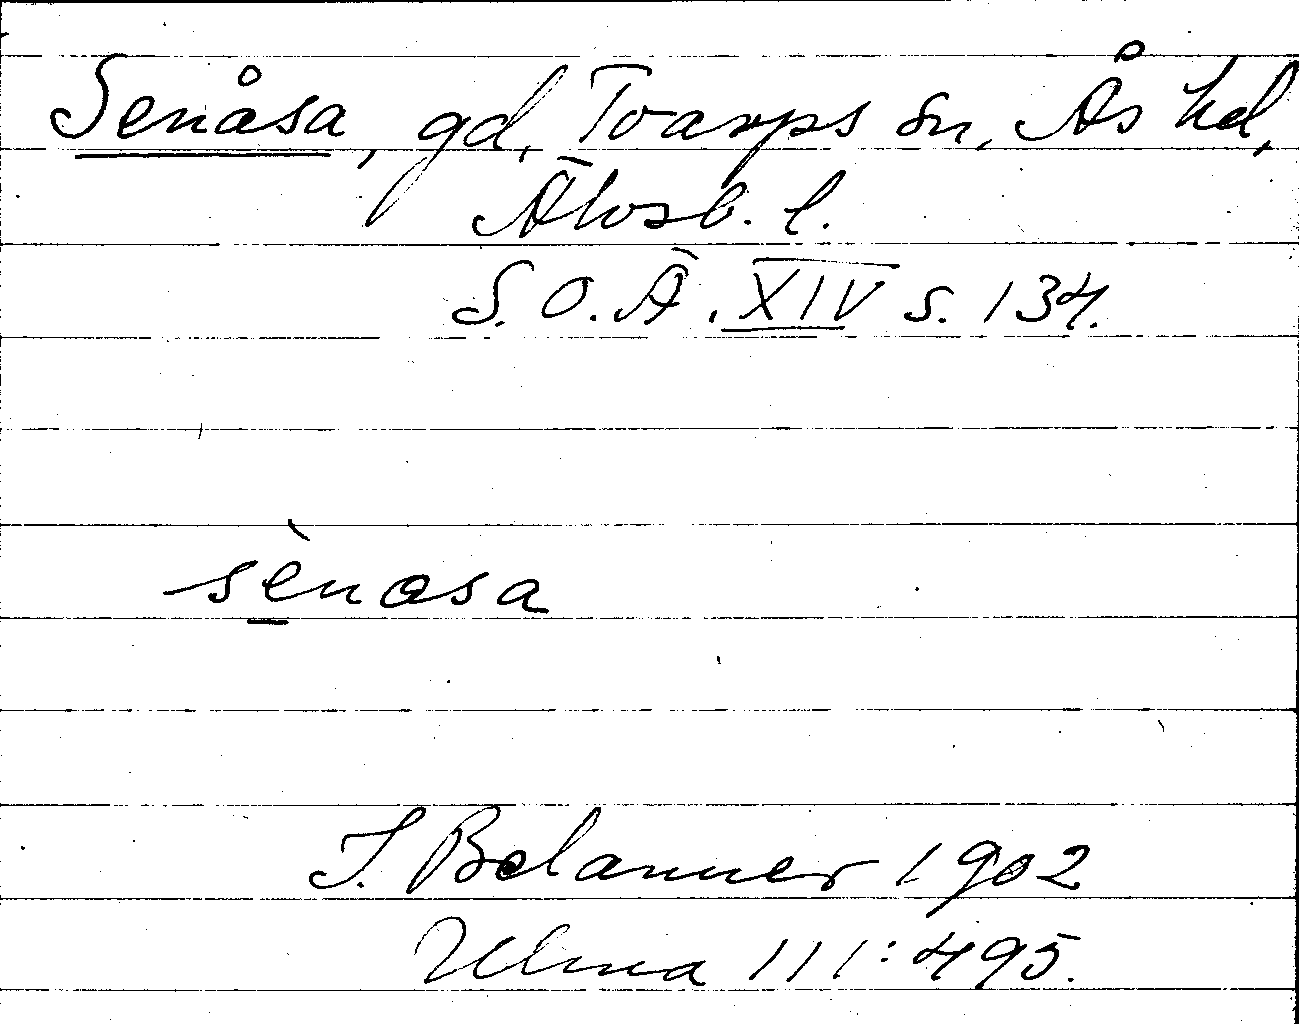 Senåsa, gd, Toarps sn, Ås hd,
Älvsb. l.
S. O. Ä. XIV s. 134.
sènåsa
J. Belanner 1902
Ulma 111:495.